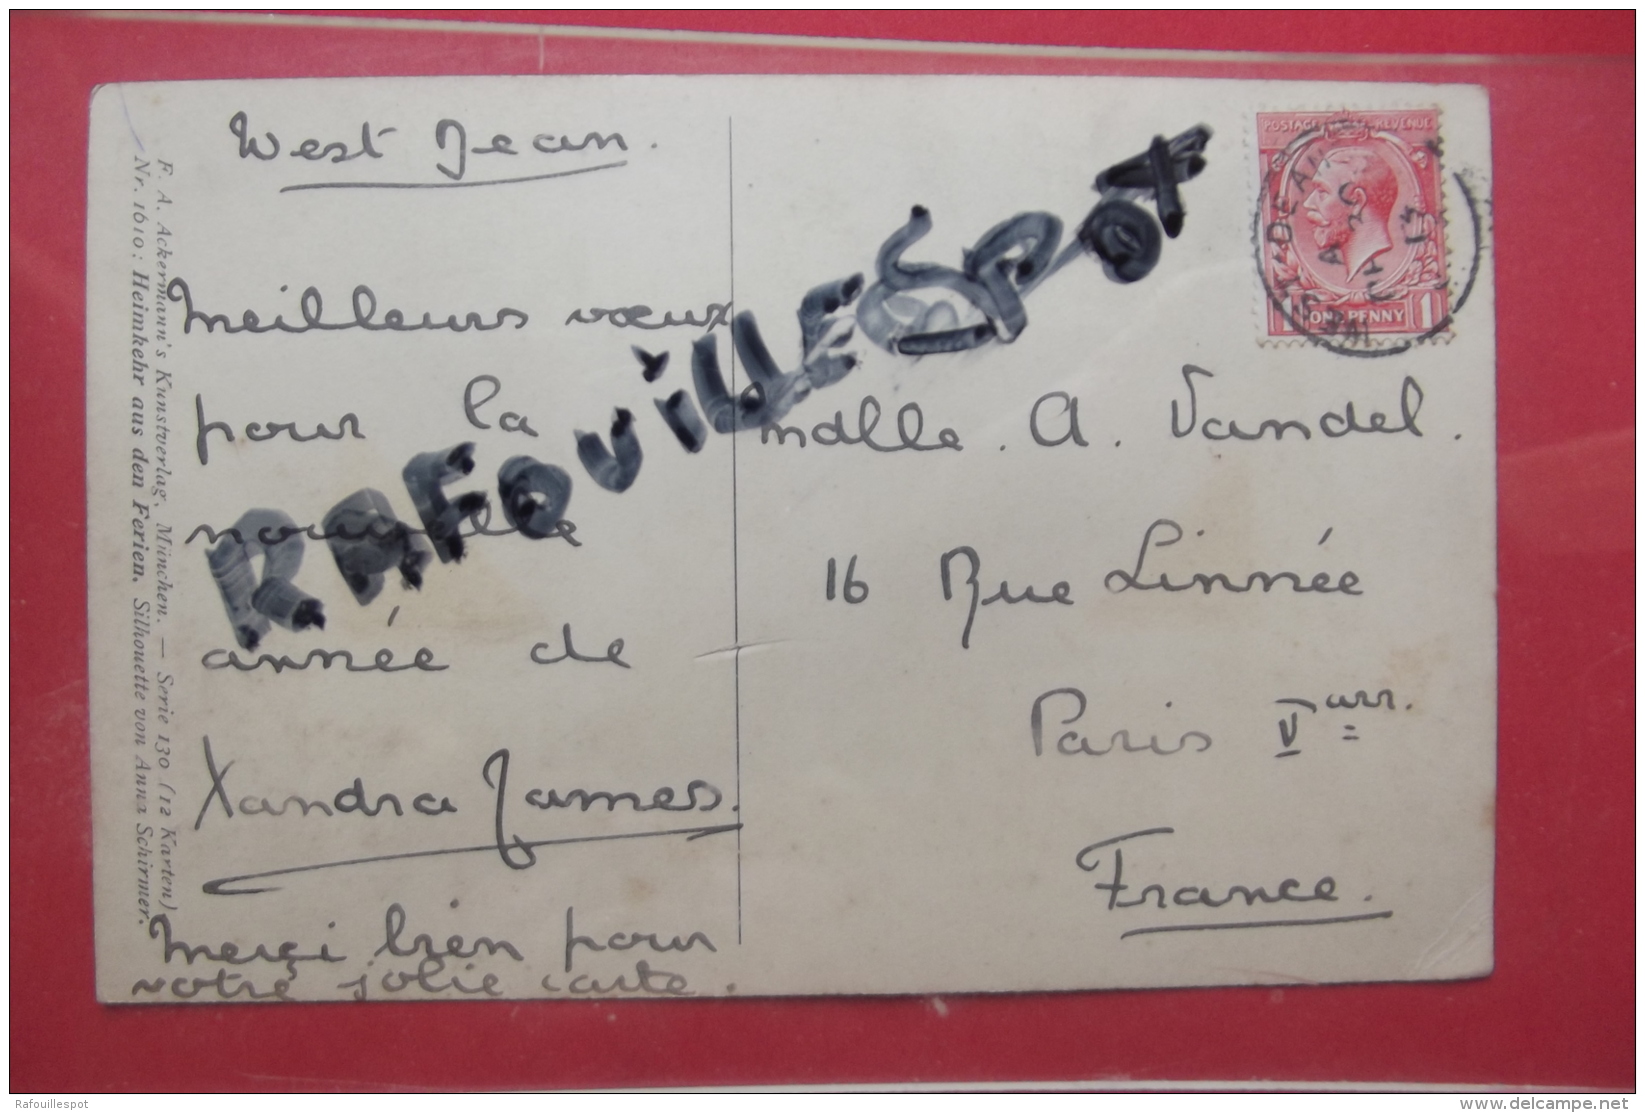 West Dean.
Meilleurs vœux
pour la
nouvelle
année de
Xandra James.
Merci bien pour
votre jolie carte.
Mdlle. A. Vandel.
16 Rue Linnée
Paris V arr.
France.
POSTAGE REVENUE
ONE PENNY
F. A. Ackermann's Kunstverlag, München. — Serie 130 (12 Karten)
Nr. 1610: Heimkehr aus den Ferien. Silhouette von Anna Schirmer.
RAFOUiLLESPOT
Rafouillespot
www.delcampe.net